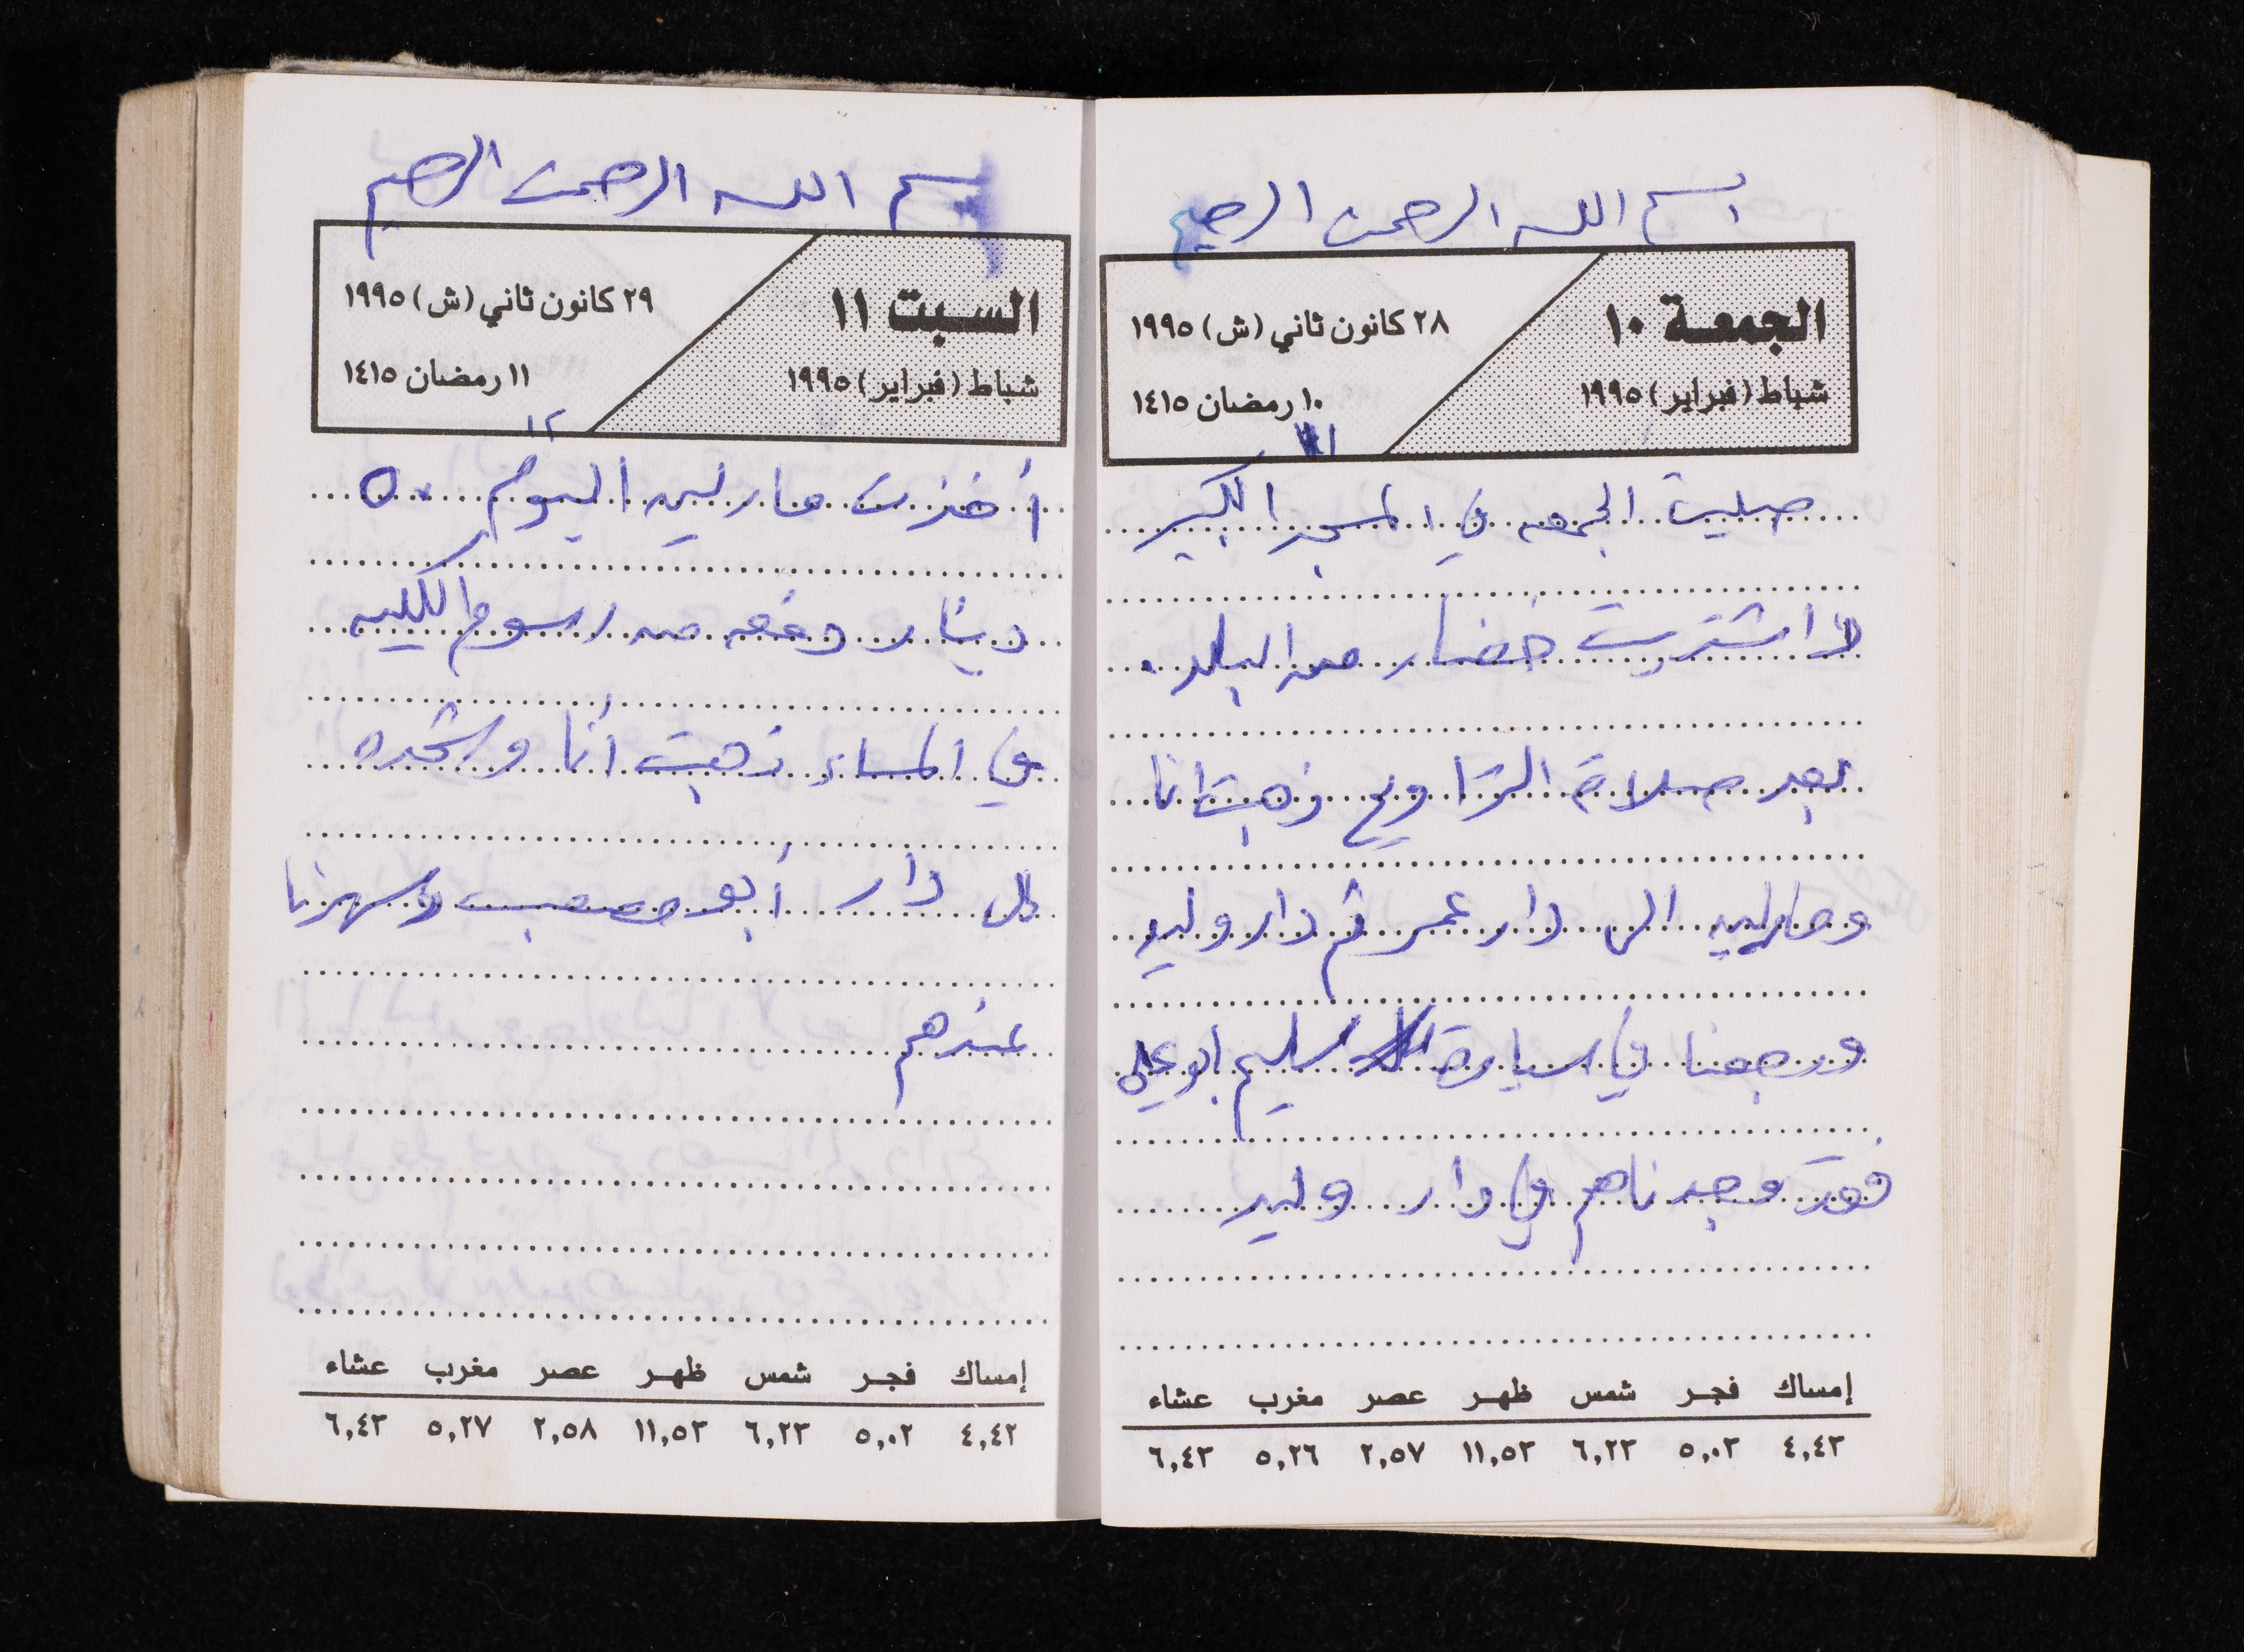 بسم الله الرحمن الرحيم
الجمعة ١٠
٢٨ كانون ثاني (ش) ١٩٩٥
شباط (فبراير) ١٩٩٥
١٠ رمضان ١٤١٥
١١
صليت الجمعه في المسجد الكبير
اشتريت خضار من البلد.
بعد صلاة التراويح ذهبت انا
ومارلين الى دار عمر ثم دار وليد
ورجعنا في سيارة سليم ابو علي
فقد وجدناهم في دار وليد
إمساك فجر شمس ظهر عصر مغرب عشاء
٤,٤٣ ٥,٠٣ ٦,٢٣ ١١,٥٣ ٢,٥٧ ٥,٢٦ ٦,٤٣
بسم الله الرحمن الرحيم
السبت ١١
٢٩ كانون ثاني (ش) ١٩٩٥
شباط (فبراير) ١٩٩٥
١١ رمضان ١٤١٥
١٢
أخذت مارلين اليوم ٥٠
دينار دفعه من رسوم الكليه
في المساء ذهبت أنا ورشده
الى دار أبو مصعب وسهرنا
عندهم
إمساك فجر شمس ظهر عصر مغرب عشاء
٤,٤٢ ٥,٠٢ ٦,٢٣ ١١,٥٣ ٢,٥٨ ٥,٢٧ ٦,٤٣